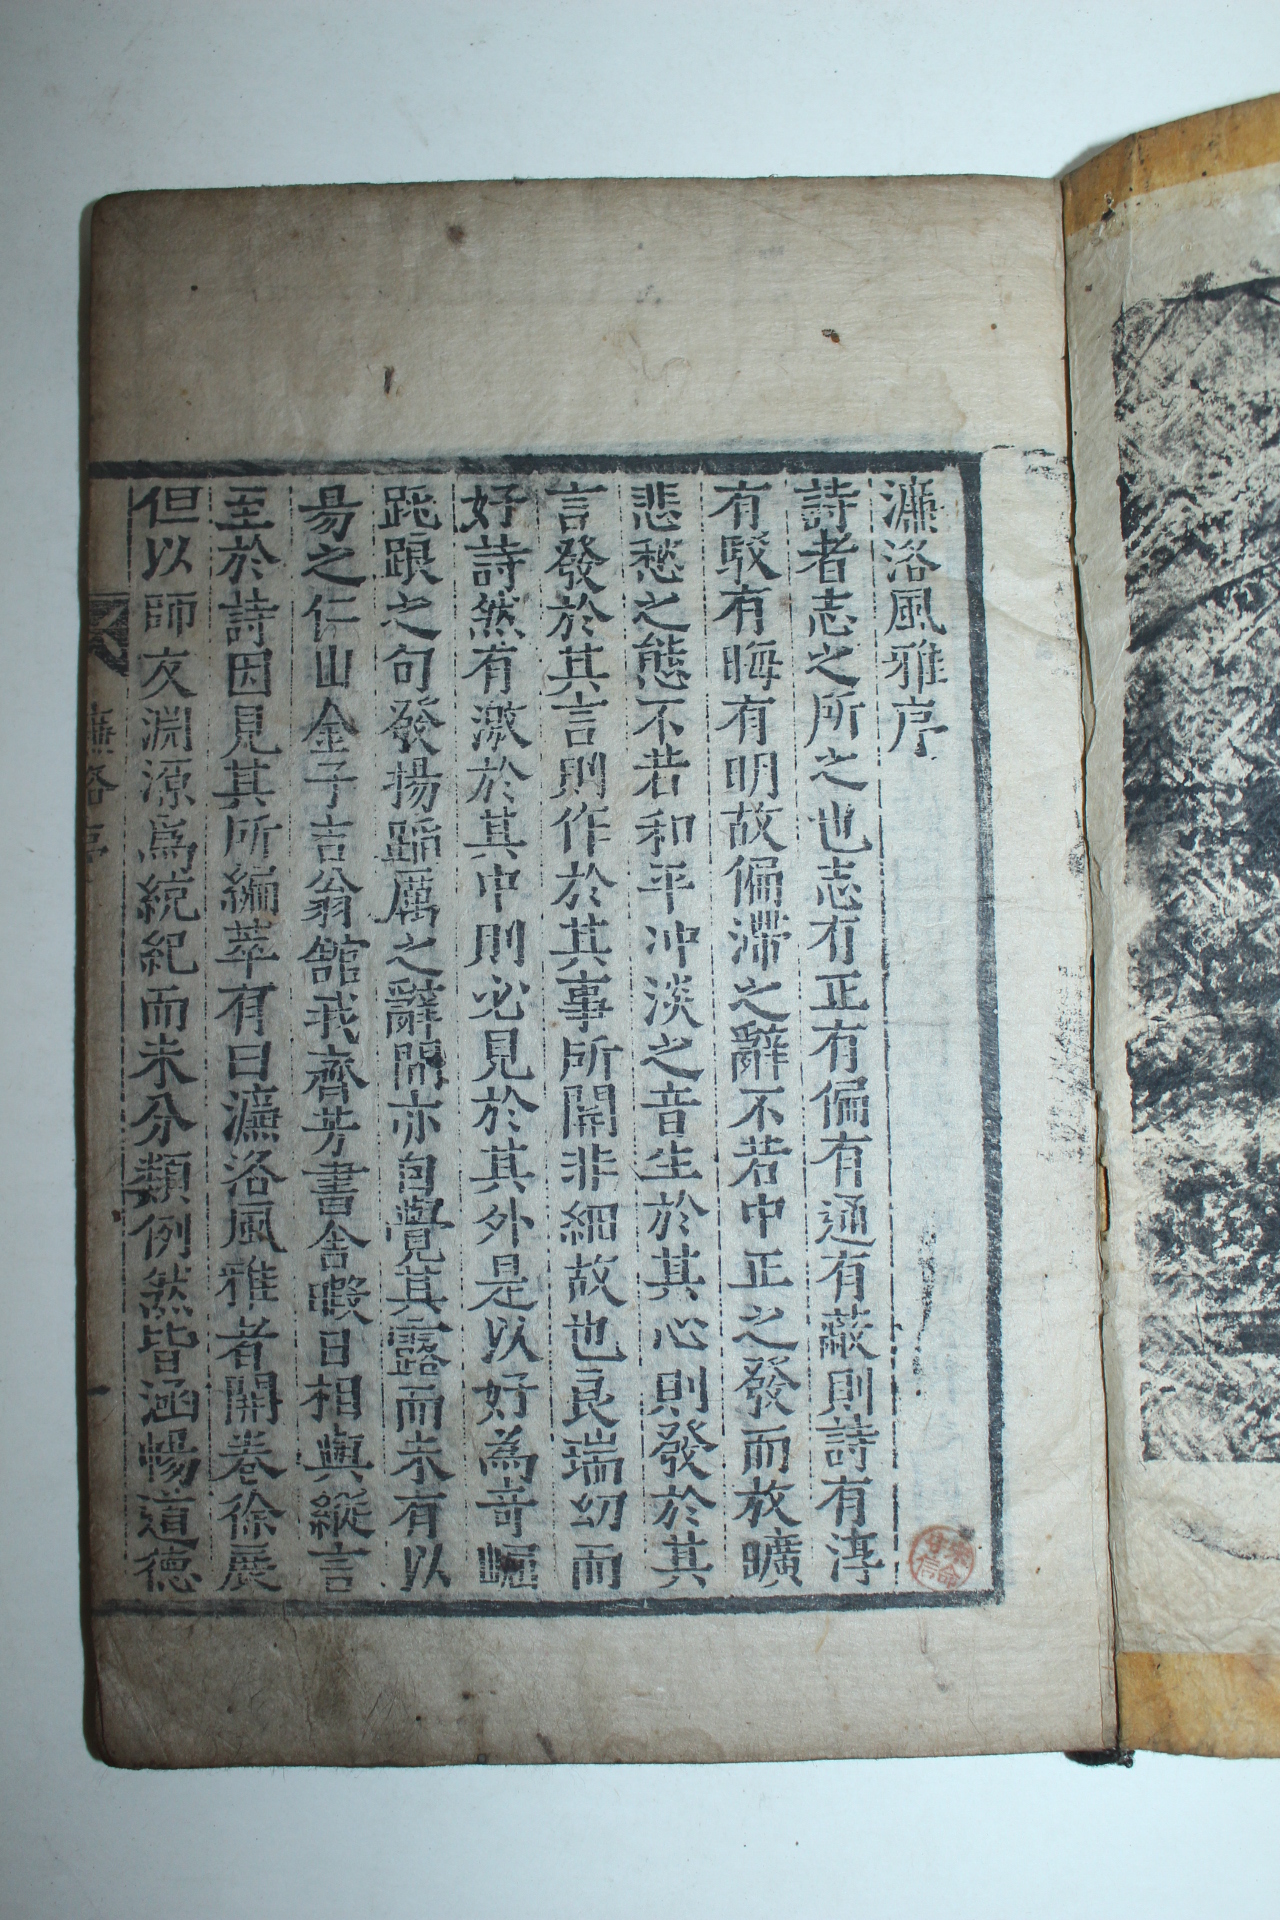 濂洛風雅序
詩者志之所之也志有正有偏有通有蔽則詩有淳
有駁有晦有明故偏滯之辭不若中正之發而放曠
悲愁之態不若和平冲淡之音生於其心則發於其
言發於其言則作於其事所開非細故也良瑞幼而
好詩然有激於其中則必見於其外是以好為奇崛
跌踉之句發揚蹈厲之辭間亦自覺其露而未有以
易之仁山金子言翁舘我齊芳書舎暇日相與縱言
至於詩因見其所編萃有曰濂洛風雅者開卷徐展
但以師友淵源爲統紀而未分類例然皆涵暢道德
濂洛序
一